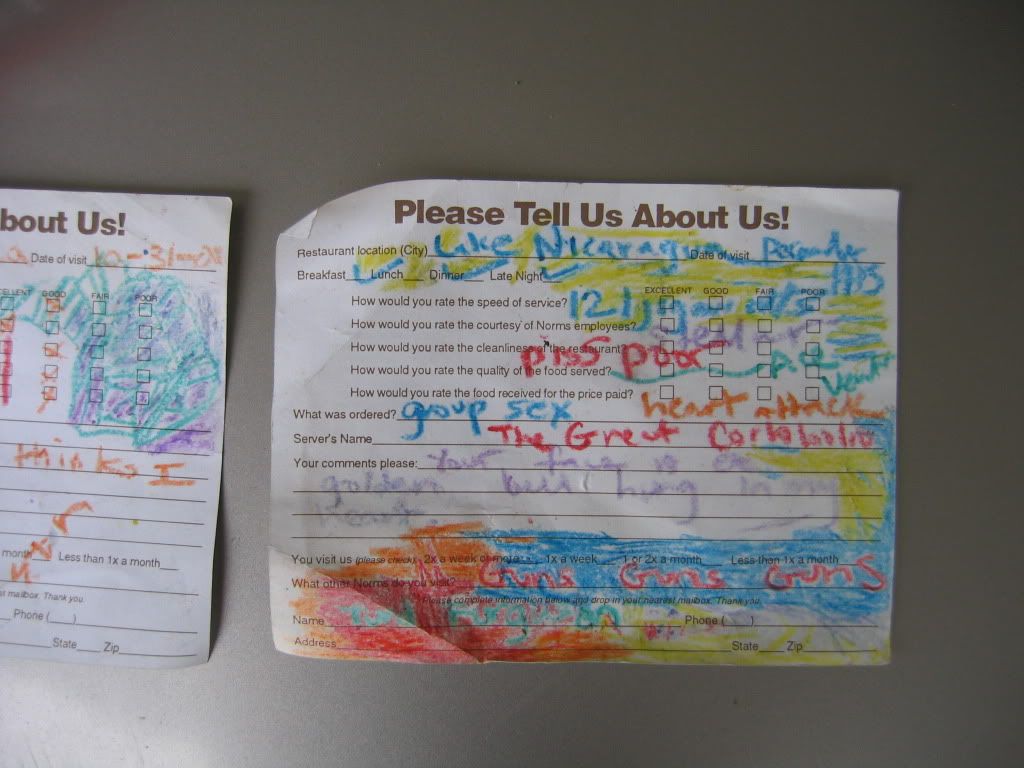 bout Us!
Date of visit 10-31-
CELLENT GOOD FAIR POOR
thinks I
month Less than 1x a month
st mailbox. Thank you.
Phone ( )
State Zip
Please Tell Us About Us!
Restaurant location (City) Lake Nicaragua Date of visit December
Breakfast Lunch Dinner Late Night
EXCELLENT GOOD FAIR POOR
How would you rate the speed of service? 12
How would you rate the courtesy of Norms employees?
How would you rate the cleanliness of the restaurant? piss poor
How would you rate the quality of the food served?
How would you rate the food received for the price paid?
What was ordered? group sex heart attack
Server's Name The Great
Your comments please: Your is a
golden bull hung in my
heart.
You visit us (please check): 2x a week or more 1x a week 1 or 2x a month Less than 1x a month
What other Norms do you visit? Guns Guns Guns
Please complete information below and drop in your nearest mailbox. Thank you.
Name Phone ( )
Address State Zip